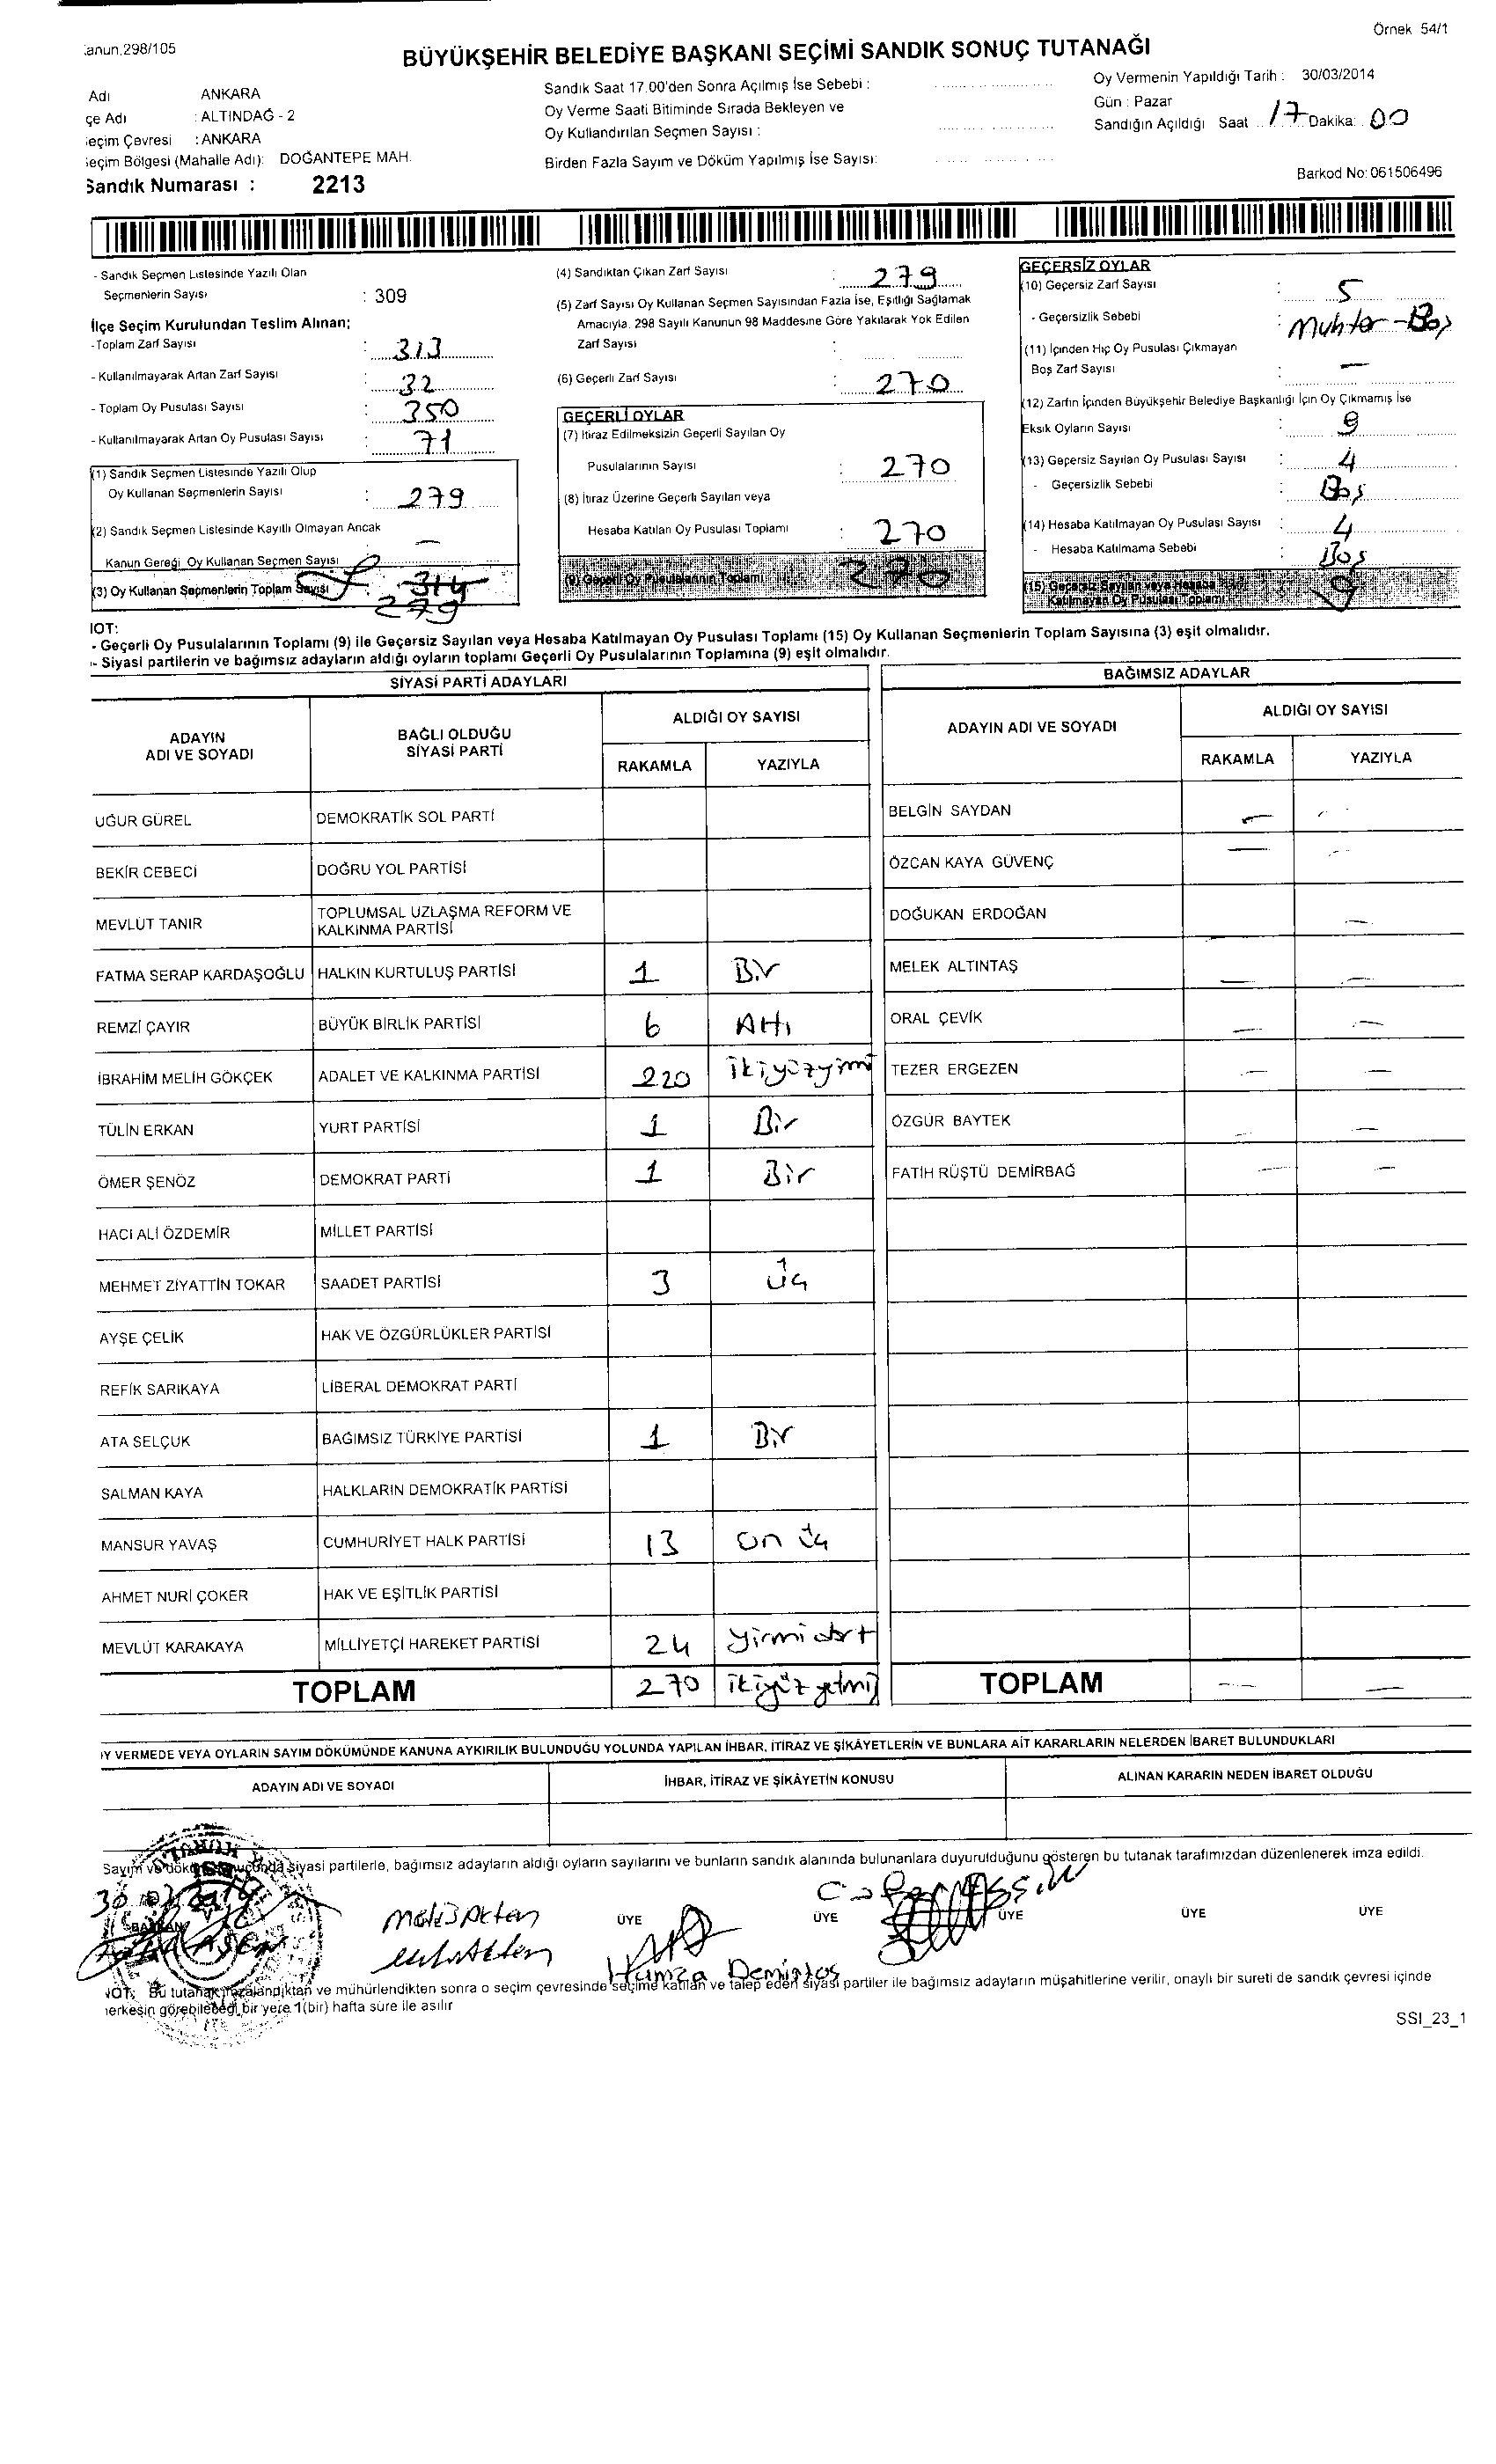 Örnek 54/1
anun.298/105
BÜYÜKŞEHİR BELEDİYE BAŞKANI SEÇİMİ SANDIK SONUÇ TUTANAĞI
Adı ANKARA
çe Adı : ALTINDAĞ - 2
eçim Çevresi : ANKARA
eçim Bölgesi (Mahalle Adı): DOĞANTEPE MAH.
Sandık Numarası : 2213
Sandık Saat 17.00'den Sonra Açılmış İse Sebebi :
Oy Verme Saati Bitiminde Sırada Bekleyen ve
Oy Kullandırılan Seçmen Sayısı :
Birden Fazla Sayım ve Döküm Yapılmış İse Sayısı:
Oy Vermenin Yapıldığı Tarih : 30/03/2014
Gün : Pazar
Sandığın Açıldığı Saat 17 Dakika: 00
Barkod No: 061506496
- Sandık Seçmen Listesinde Yazılı Olan
Seçmenlerin Sayısı : 309
İlçe Seçim Kurulundan Teslim Alınan;
-Toplam Zarf Sayısı : 313
- Kullanılmayarak Artan Zarf Sayısı : 32
- Toplam Oy Pusulası Sayısı : 350
- Kullanılmayarak Artan Oy Pusulası Sayısı : 71
(1) Sandık Seçmen Listesinde Yazılı Olup
Oy Kullanan Seçmenlerin Sayısı : 279
(2) Sandık Seçmen Listesinde Kayıtlı Olmayan Ancak
Kanun Gereği Oy Kullanan Seçmen Sayısı —
(3) Oy Kullanan Seçmenlerin Toplam Sayısı 314
279
(4) Sandıktan Çıkan Zarf Sayısı : 279
(5) Zarf Sayısı Oy Kullanan Seçmen Sayısından Fazla İse, Eşitliği Sağlamak
Amacıyla, 298 Sayılı Kanunun 98 Maddesine Göre Yakılarak Yok Edilen
Zarf Sayısı :
(6) Geçerli Zarf Sayısı : 270
GEÇERLİ OYLAR
(7) İtiraz Edilmeksizin Geçerli Sayılan Oy
Pusulalarının Sayısı : 270
(8) İtiraz Üzerine Geçerli Sayılan veya
Hesaba Katılan Oy Pusulası Toplamı : 270
(9) Geçerli Oy Pusulalarının Toplamı 270
GEÇERSİZ OYLAR
(10) Geçersiz Zarf Sayısı : 5
- Geçersizlik Sebebi : Muhtar - Boş
(11) İçinden Hiç Oy Pusulası Çıkmayan
Boş Zarf Sayısı : —
(12) Zarfın İçinden Büyükşehir Belediye Başkanlığı İçin Oy Çıkmamış İse
Eksik Oyların Sayısı : 9
(13) Geçersiz Sayılan Oy Pusulası Sayısı : 4
- Geçersizlik Sebebi : Boş
(14) Hesaba Katılmayan Oy Pusulası Sayısı : 4
- Hesaba Katılmama Sebebi : Boş
(15) Geçersiz Sayılan veya Hesaba
Katılmayan Oy Pusulası Toplamı 9
IOT:
- Geçerli Oy Pusulalarının Toplamı (9) ile Geçersiz Sayılan veya Hesaba Katılmayan Oy Pusulası Toplamı (15) Oy Kullanan Seçmenlerin Toplam Sayısına (3) eşit olmalıdır.
- Siyasi partilerin ve bağımsız adayların aldığı oyların toplamı Geçerli Oy Pusulalarının Toplamına (9) eşit olmalıdır.
SİYASİ PARTİ ADAYLARI
ADAYIN ADI VE SOYADI BAĞLI OLDUĞU SİYASİ PARTİ ALDIĞI OY SAYISI
RAKAMLA YAZIYLA
UĞUR GÜREL DEMOKRATİK SOL PARTİ
BEKİR CEBECİ DOĞRU YOL PARTİSİ
MEVLÜT TANIR TOPLUMSAL UZLAŞMA REFORM VE KALKINMA PARTİSİ
FATMA SERAP KARDAŞOĞLU HALKIN KURTULUŞ PARTİSİ 1 Bir
REMZİ ÇAYIR BÜYÜK BİRLİK PARTİSİ 6 Altı
İBRAHİM MELİH GÖKÇEK ADALET VE KALKINMA PARTİSİ 220 ikiyüzyirmi
TÜLİN ERKAN YURT PARTİSİ 1 Bir
ÖMER ŞENÖZ DEMOKRAT PARTİ 1 Bir
HACI ALİ ÖZDEMİR MİLLET PARTİSİ
MEHMET ZİYATTİN TOKAR SAADET PARTİSİ 3 üç
AYŞE ÇELİK HAK VE ÖZGÜRLÜKLER PARTİSİ
REFİK SARIKAYA LİBERAL DEMOKRAT PARTİ
ATA SELÇUK BAĞIMSIZ TÜRKİYE PARTİSİ 1 Bir
SALMAN KAYA HALKLARIN DEMOKRATİK PARTİSİ
MANSUR YAVAŞ CUMHURİYET HALK PARTİSİ 13 on üç
AHMET NURİ ÇOKER HAK VE EŞİTLİK PARTİSİ
MEVLÜT KARAKAYA MİLLİYETÇİ HAREKET PARTİSİ 24 yirmidört
TOPLAM 270 ikiyüz yetmiş
BAĞIMSIZ ADAYLAR
ADAYIN ADI VE SOYADI ALDIĞI OY SAYISI
RAKAMLA YAZIYLA
BELGİN SAYDAN — —
ÖZCAN KAYA GÜVENÇ — —
DOĞUKAN ERDOĞAN — —
MELEK ALTINTAŞ — —
ORAL ÇEVİK — —
TEZER ERGEZEN — —
ÖZGÜR BAYTEK — —
FATİH RÜŞTÜ DEMİRBAĞ — —
TOPLAM — —
IY VERMEDE VEYA OYLARIN SAYIM DÖKÜMÜNDE KANUNA AYKIRILIK BULUNDUĞU YOLUNDA YAPILAN İHBAR, İTİRAZ VE ŞİKÂYETLERİN VE BUNLARA AİT KARARLARIN NELERDEN İBARET BULUNDUKLARI
ADAYIN ADI VE SOYADI İHBAR, İTİRAZ VE ŞİKÂYETİN KONUSU ALINAN KARARIN NEDEN İBARET OLDUĞU
Sayım ve döküm sonucunda siyasi partilerle, bağımsız adayların aldığı oyların sayılarını ve bunların sandık alanında bulunanlara duyurulduğunu gösteren bu tutanak tarafımızdan düzenlenerek imza edildi.
BAŞKAN ÜYE ÜYE ÜYE ÜYE ÜYE
Hamza Demirtaş
IOT: Bu tutanak imzalandıktan ve mühürlendikten sonra o seçim çevresinde seçime katılan ve talep eden siyasi partiler ile bağımsız adayların müşahitlerine verilir, onaylı bir sureti de sandık çevresi içinde
erkesin görebileceği bir yere 1(bir) hafta süre ile asılır
SSI_23_1